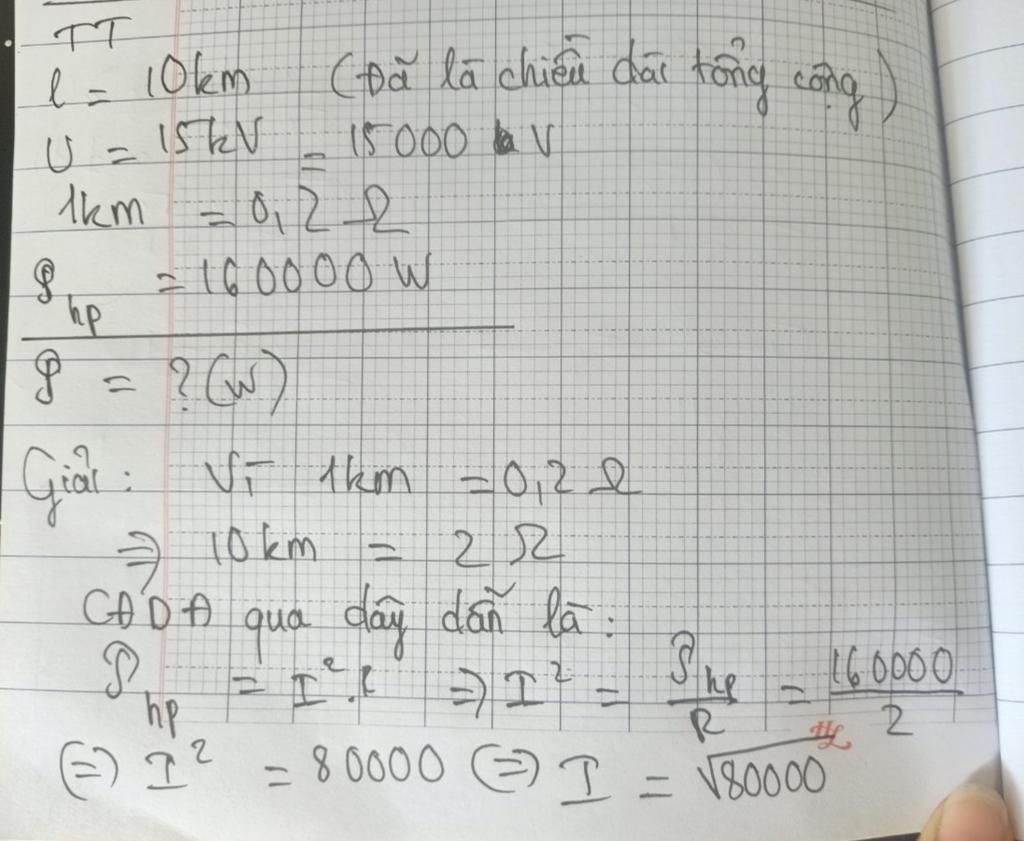 TT
l = 10km (Đã là chiều dài tổng cộng)
U = 15kV = 15000 V
1km = 0,2 Ω
P hp = 160000 W
P = ? (W)
Giải: Vì 1km = 0,2 Ω
⇒ 10km = 2 Ω
CĐDĐ qua dây dẫn là:
P hp = I².r ⇒ I² = P hp / R = 160000 / 2
(=) I² = 80000 (=) I = √80000